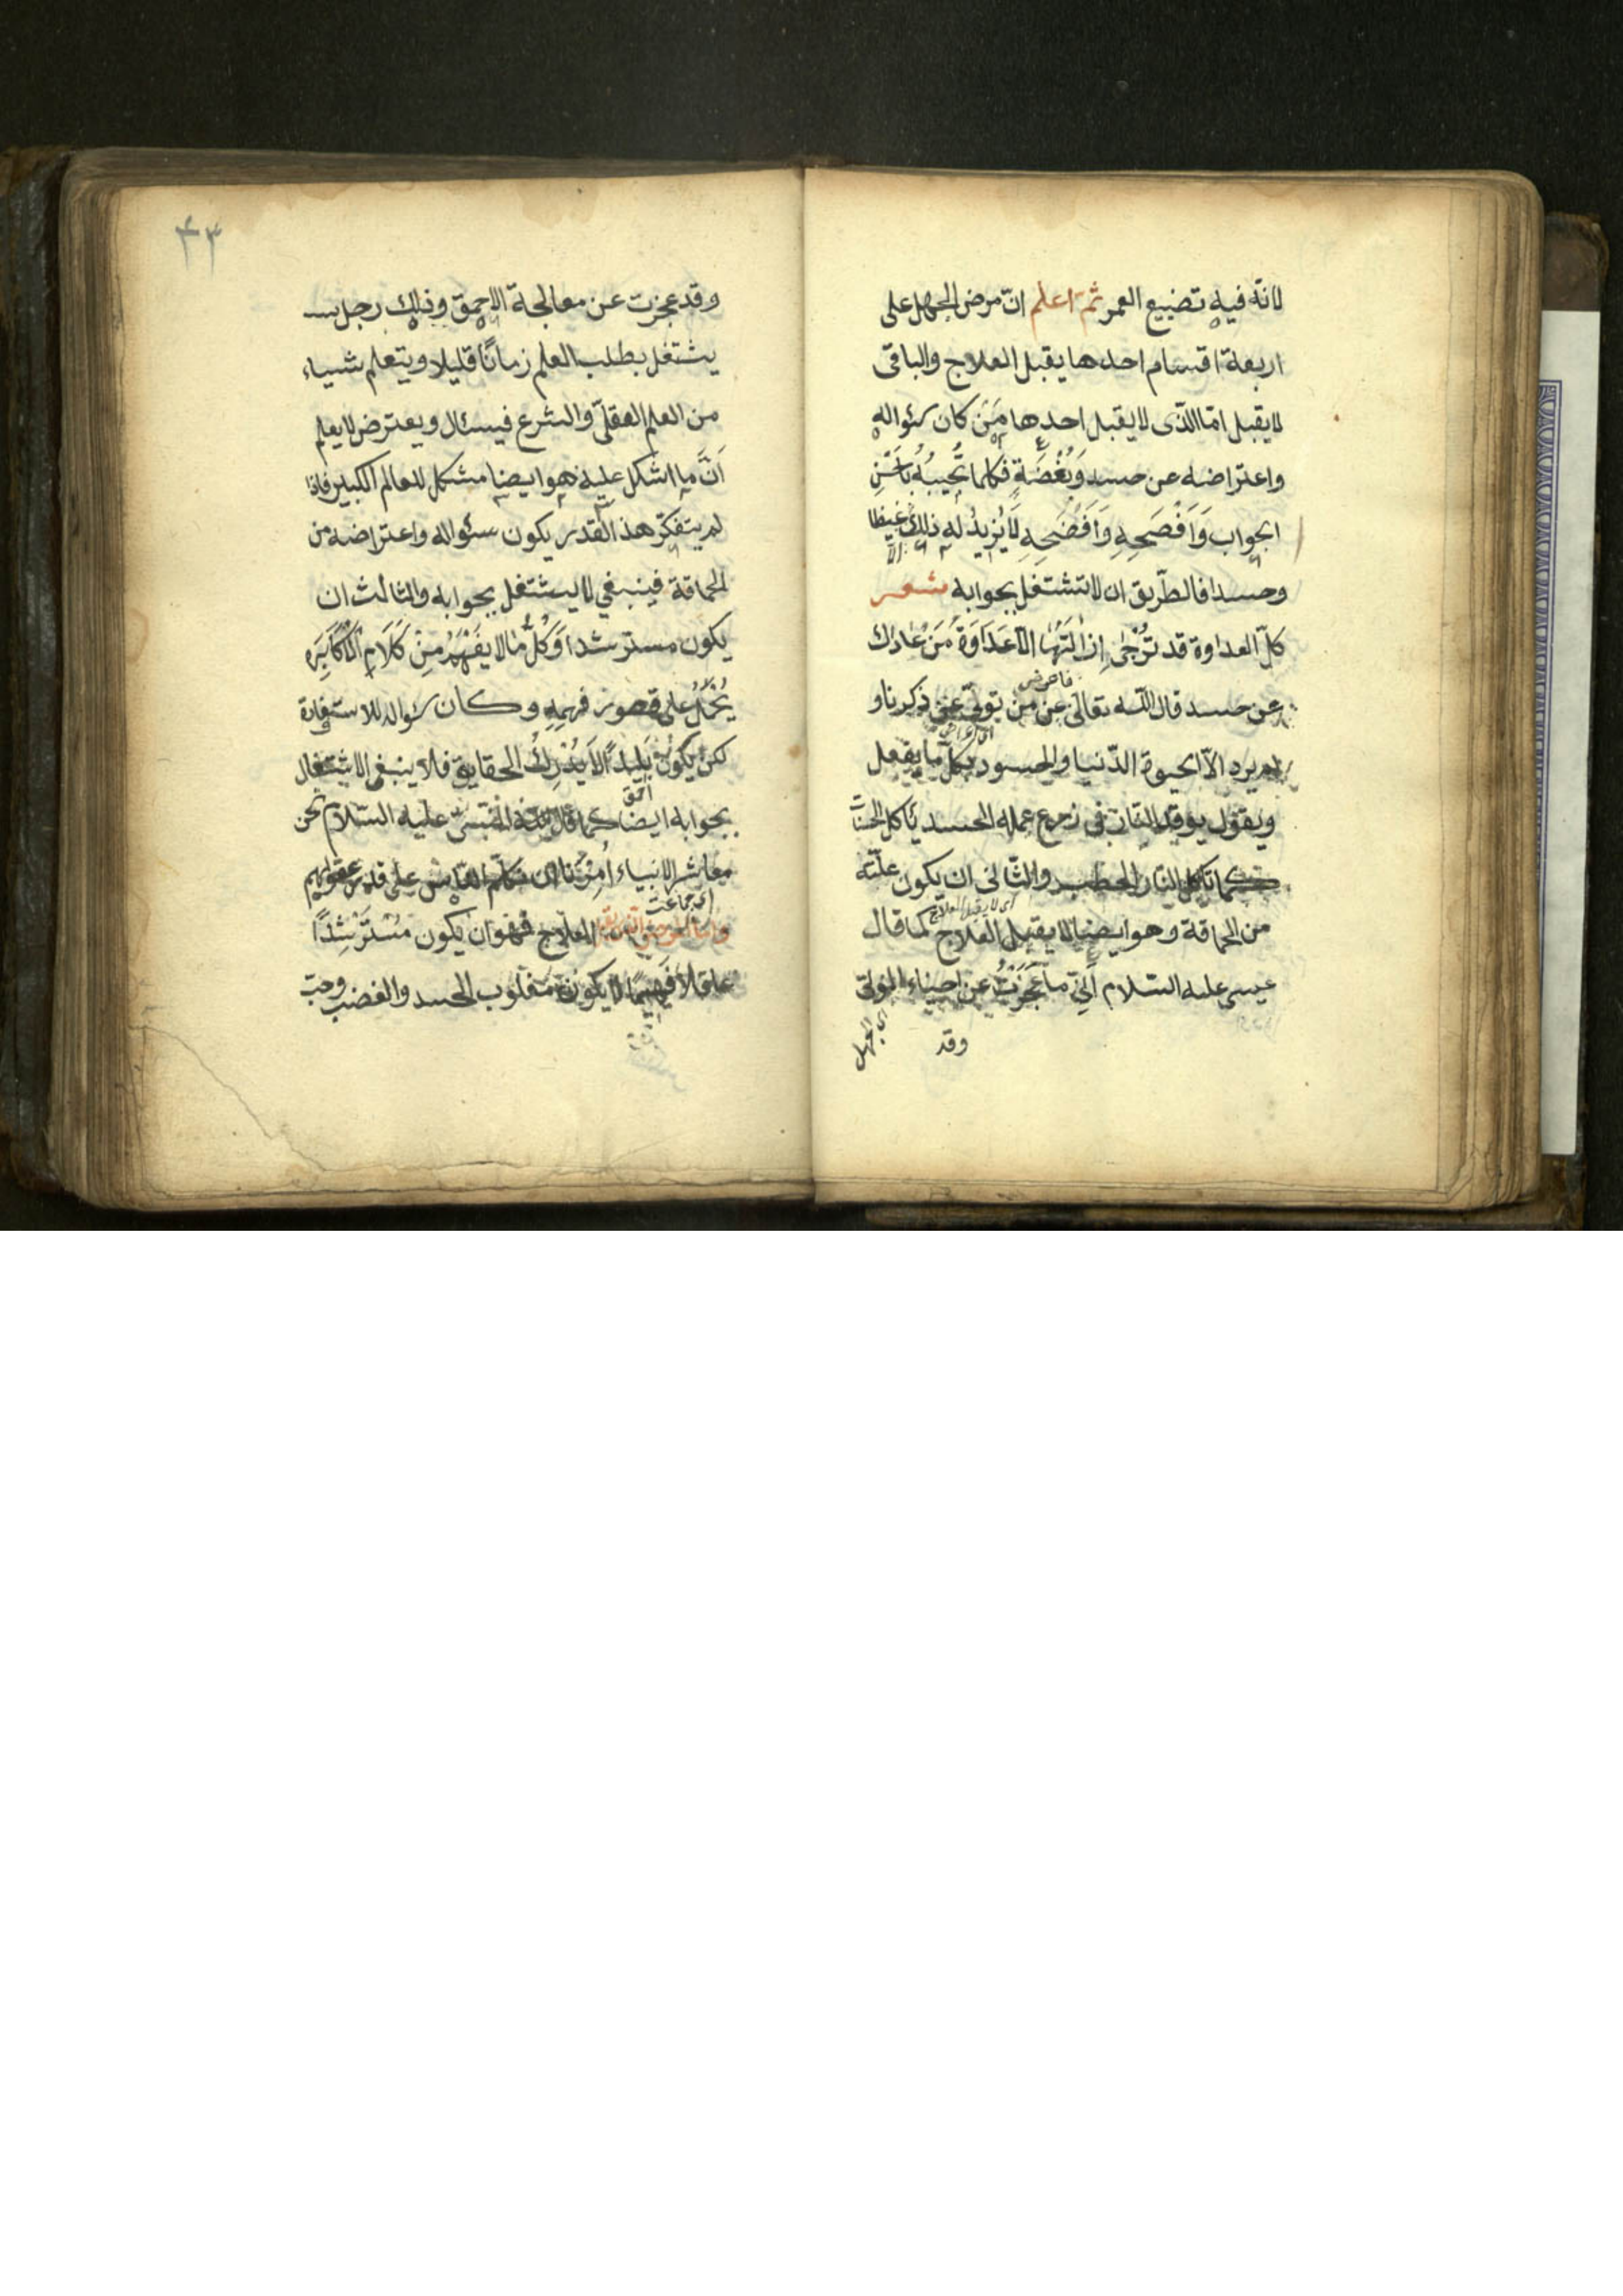 لانّه فيه تضييع العمر ثم اعلم انّ مرض الجهل على
اربعة اقسام احدها يقبل العلاج والباقى
لا يقبل امّا الّذى لا يقبل احدها مَنْ كان سؤاله
واعتراضه عن حسد وَبُغْضَةٍ فكلما تُجيبُهُ بِاَحْسَنِ
الجواب وَاَفْصَحِهِ وَاَفْضَحِهِ لَايُزِيدُ له ذلك غيظا
الّا
وحسدا فالطّريق ان لا تشتغل بجوابه شعر
كلّ العداوة قد تُرْجٰى اِزَالَتُهَا الّا عَدَاوَةَ مَنْ عَادَاك
فاعرض
عن حسد قال اللّه تعالى عن من تولّى عن ذكرنا و
لم يرد الّا الحيوة الدّنيا والحسود بكلّ ما يفعل
ويقول يوقد النّار فى زرع عمله الحسد يأكل الحسنات
كما تأكل النار الحطب والثّانى ان يكون علّته
اى لا يقبل العلاج
من الحماقة وهو ايضا لا يقبل العلاج كما قال
عيسى عليه السّلام اَنّى ما عَجَزْتُ عن احياء الموتى
اى الجهل
وقد
۴۳
وقد عجزت عن معالجة الاحمق وذلك رجل
يشتغل بطلب العلم زمانًا قليلا ويتعلم شياء
من العلم العقلىّ والشرع فيسئال ويعترض لا يعلم
اَنَّ ما اشكل عليه هو ايضا مشكل للعالم الكبير فاذا
لم يتفكّر هذا القدر يكون سئواله واعتراضه من
الحماقة فينبغي لا يشتغل بجوابه والثالث ان
يكون مسترشدا وَكُلُّ مٰا لا يَفْهَمُ مِنْ كَلَامِ الْاَكَابِرِ
يُحْمَلُ على قصور فهمِهِ وكان سؤاله للاستفادة
لكن يكون بَلِيدًا لَا يُدْرِكُ الحقايق فلا ينبغى الاشتغال
احمق
بجوابه ايضا كما قال النّبىّ عليه السّلام نحن
معاشر الانبياء اُمِرْنَا ان نكلّم النّاس على قدر عقولهم
اى جماعت
وامّا المرض الّذى يقبل العلاج فهو ان يكون مُسْتَرْشِدًا
عاقلا فَهِيمًا لا يكون مغلوب الحسد والغضب وحبّ